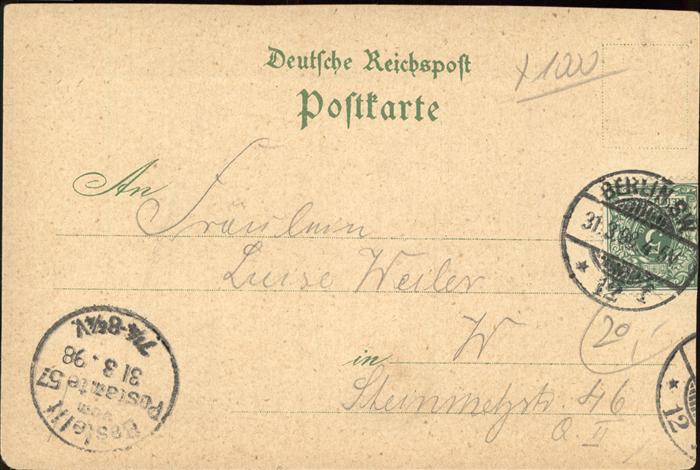 Deutsche Reichspost
Postkarte
x 1000
An Fräulein
Luise Weiler
in W
Steinmetzstr. 46
Q II
20
BERLIN S.W.
31.3.98
12
Bestellt
vom
Postamte 57
31 3. 98
7¼-8¾V.
12